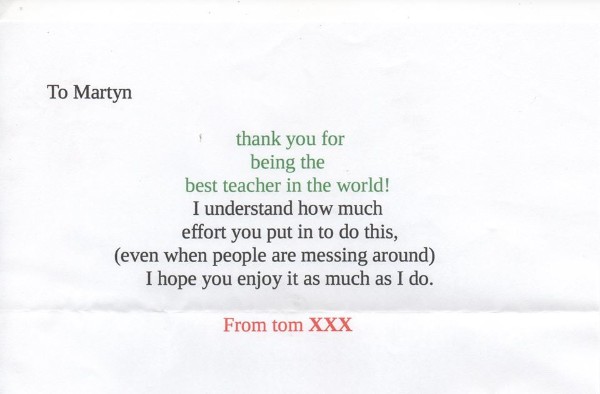 To Martyn
thank you for
being the
best teacher in the world!
I understand how much
effort you put in to do this,
(even when people are messing around)
I hope you enjoy it as much as I do.
From tom XXX